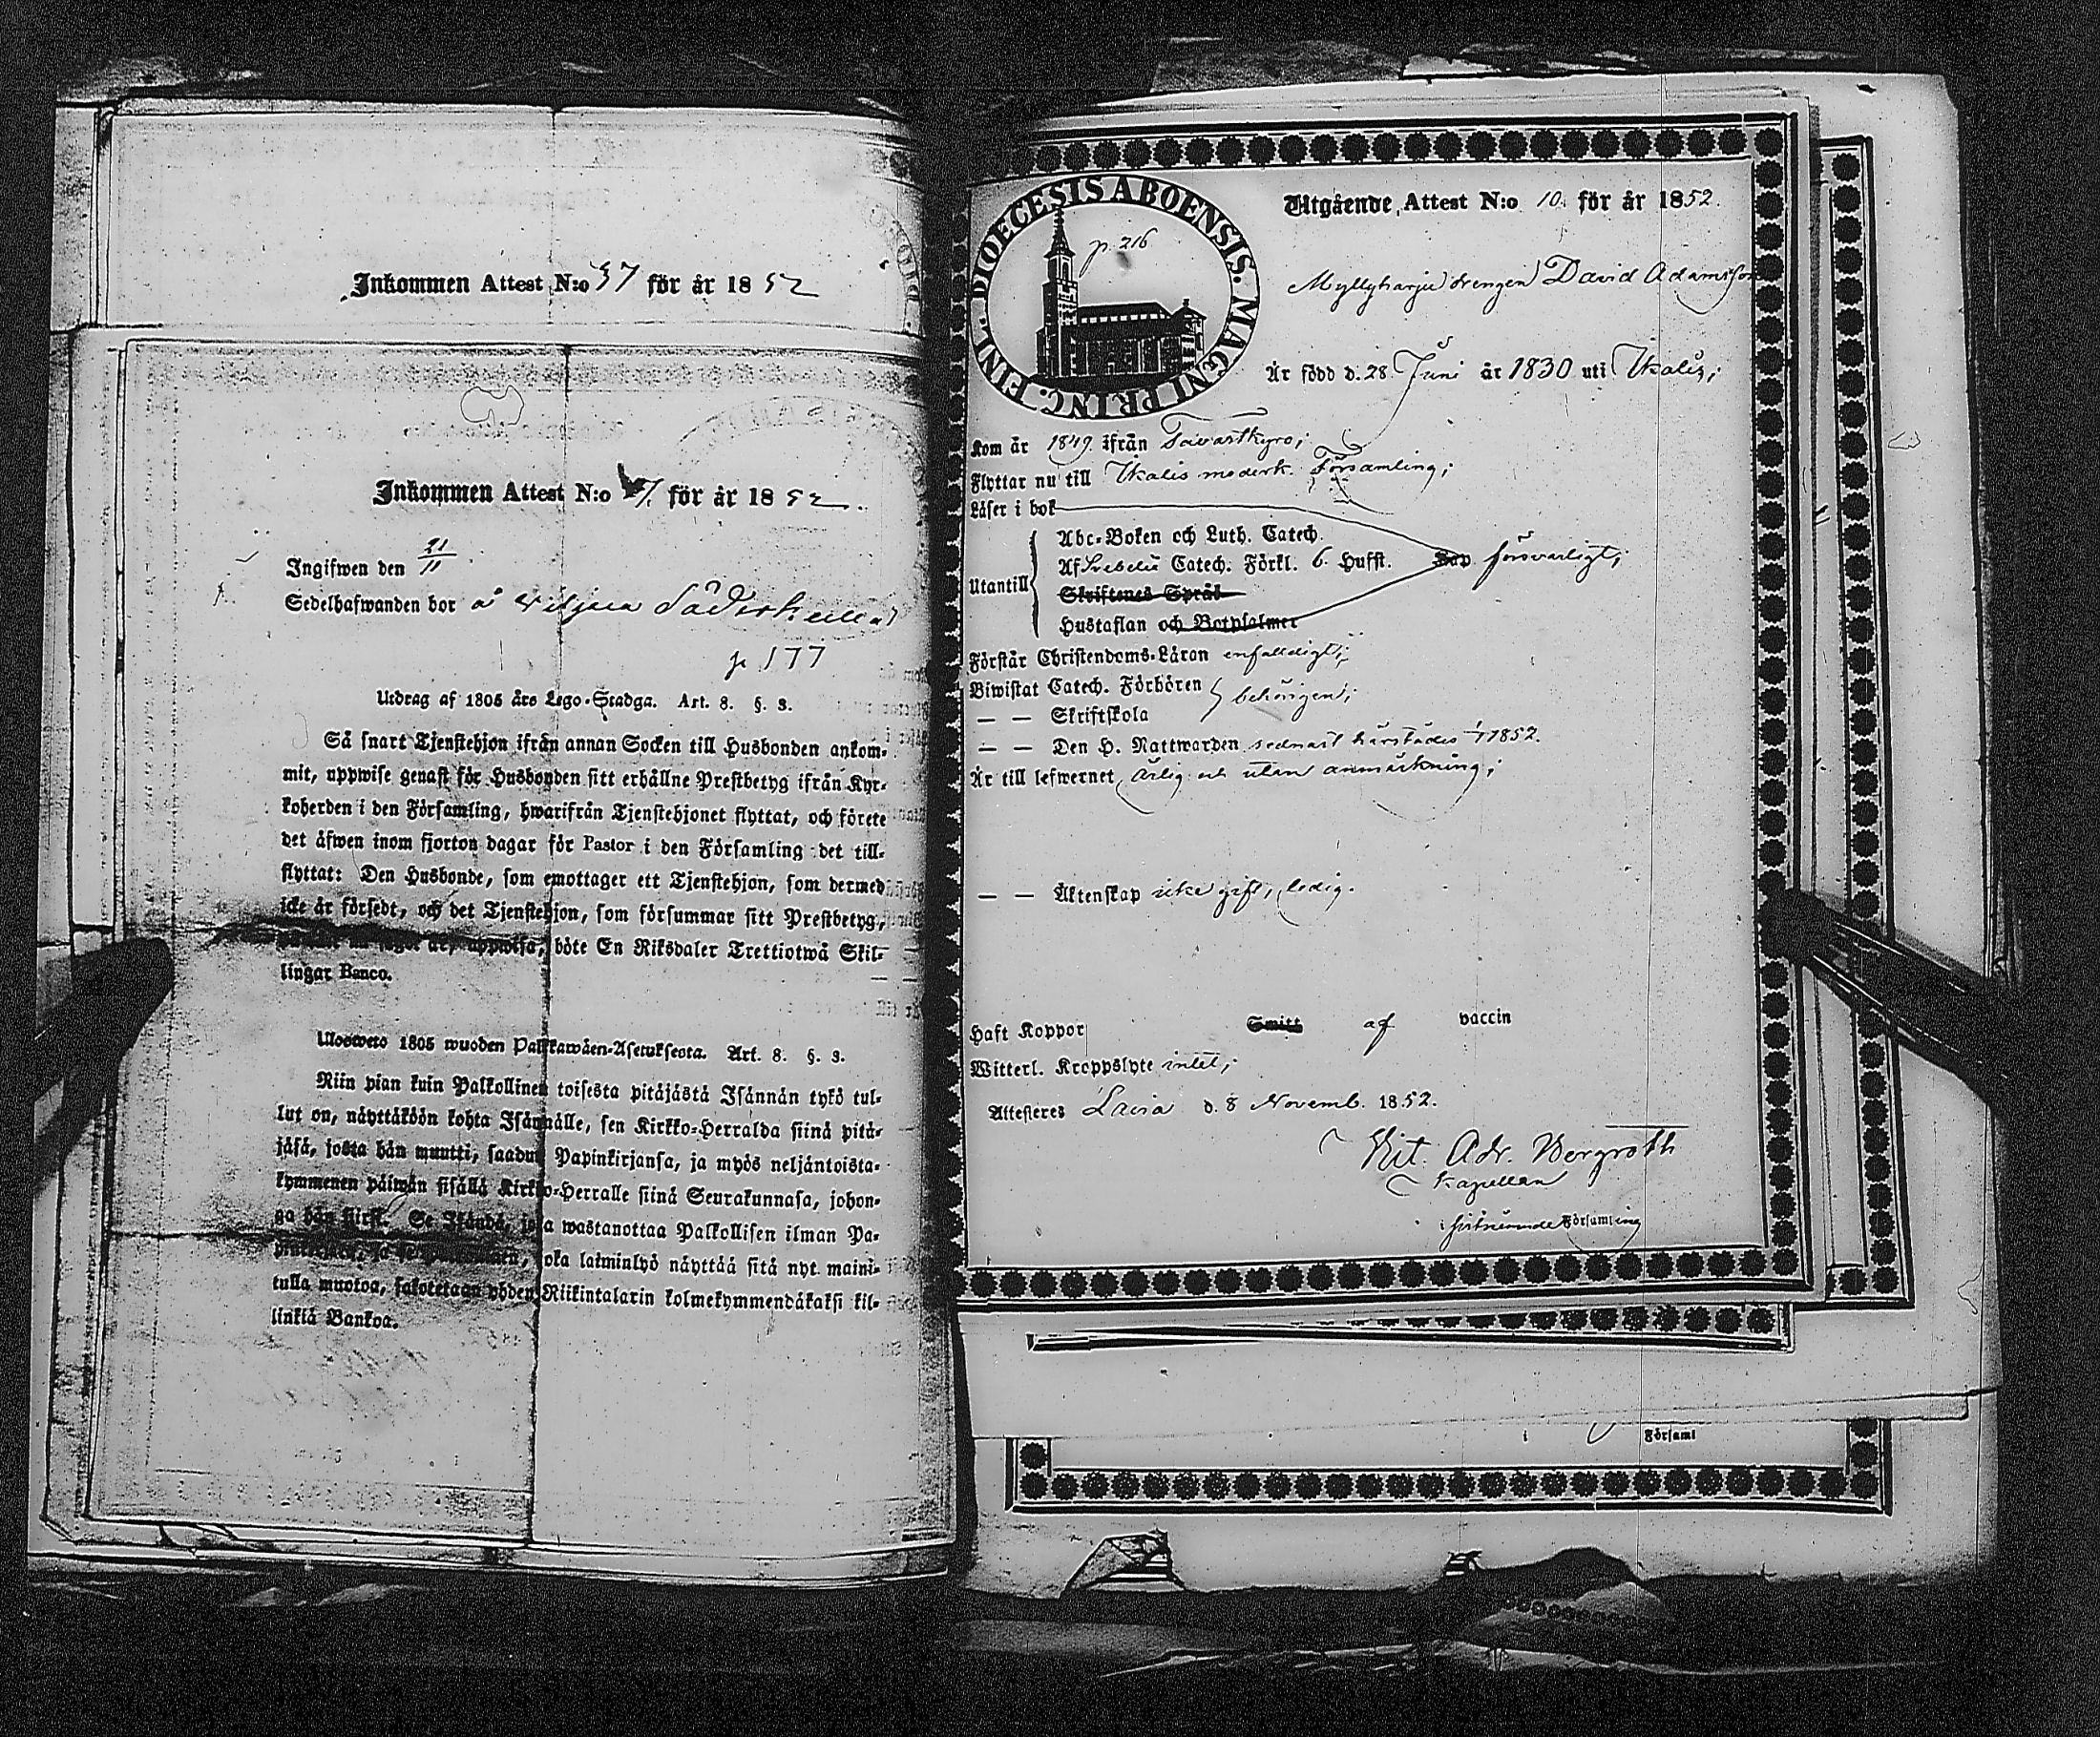 Inkommen Attest N:o 37 för år 1852
Inkommen Attest N:o för år 1852.
Ingifwen den 21/11
Sedelhafwanden bor å
p. 177
Utdrag af 1805 års Lego-Stadga. Art. 8. §. 3.
Så snart Tjenstehjon ifrån annan Socken till Husbonden ankom-
mit, uppwise genast för Husbonden sitt erhållne Prestbetyg ifrån Kyr-
koherden i den Församling, hwarifrån Tjenstehjonet flyttat, och förete
det äfwen inom fjorton dagar för Pastor i den Församling det till-
flyttat: Den Husbonde, som emottager ett Tjenstehjon, som dermed
icke är försedt, och det Tjenstehjon, som försummar sitt Prestbetyg,
uppwisa, böte En Riksdaler Trettiotwå Skil-
lingar Banco.
Ulosweto 1805 wuoden Palkawäen-Asetuksesta. Art. 8. §. 3.
Niin pian kuin Palkollinen toisesta pitäjästä Isännän tykö tul-
lut on, näyttäköön kohta Isännälle, sen Kirkko-Herralda siinä pitä-
jäsä, josta hän muutti, saadun Papinkirjansa, ja myös neljäntoista-
kymmenen päiwän sisällä Kirkko-Herralle siinä Seurakunnasa, johon-
ga hän siirsi. Se Isändä, joka wastanottaa Palkollisen ilman Pa-
joka laiminlyö näyttää sitä nyt maini-
tulla muotoa, sakotetaan yhden Riikintalarin kolmekymmendäkaksi kil-
linkiä Bankoa.
DIOECESIS ABOENSIS. MAGNI PRINC. FINL.
p. 216
Utgående Attest N:o 10. för år 1852.
Myllyharju drengen David Adamsson
Är född d. 28 Juni år 1830 uti Ikalis;
Kom år 1849. ifrån Tavastkyro;
Flyttar nu till Ikalis moderk. Församling;
Läser i bok
Utantill
Abc-Boken och Luth. Catech.
Af Svebelii Catech. Förkl. 6. Hufst. försvarligt;
Skriftenes Språk
Hustaflan och Botpsalmer
Förstår Christendoms-Läran enfaldigt;
Biwistat Catech. Förhören behörigen;
— — Skriftskola
— — Den H. Nattwarden sednast härstädes 1852.
Är till lefwernet ärlig och utan anmärkning;
— — Äktenskap icke gift, ledig.
Haft Koppor Smitt af vaccin
Witterl. Kroppslyte intet;
Attesteres Lavia d. 8 Novemb. 1852.
Kit. Adr. Bergroth
Kapellan
i förenämnde Församling
i Församl